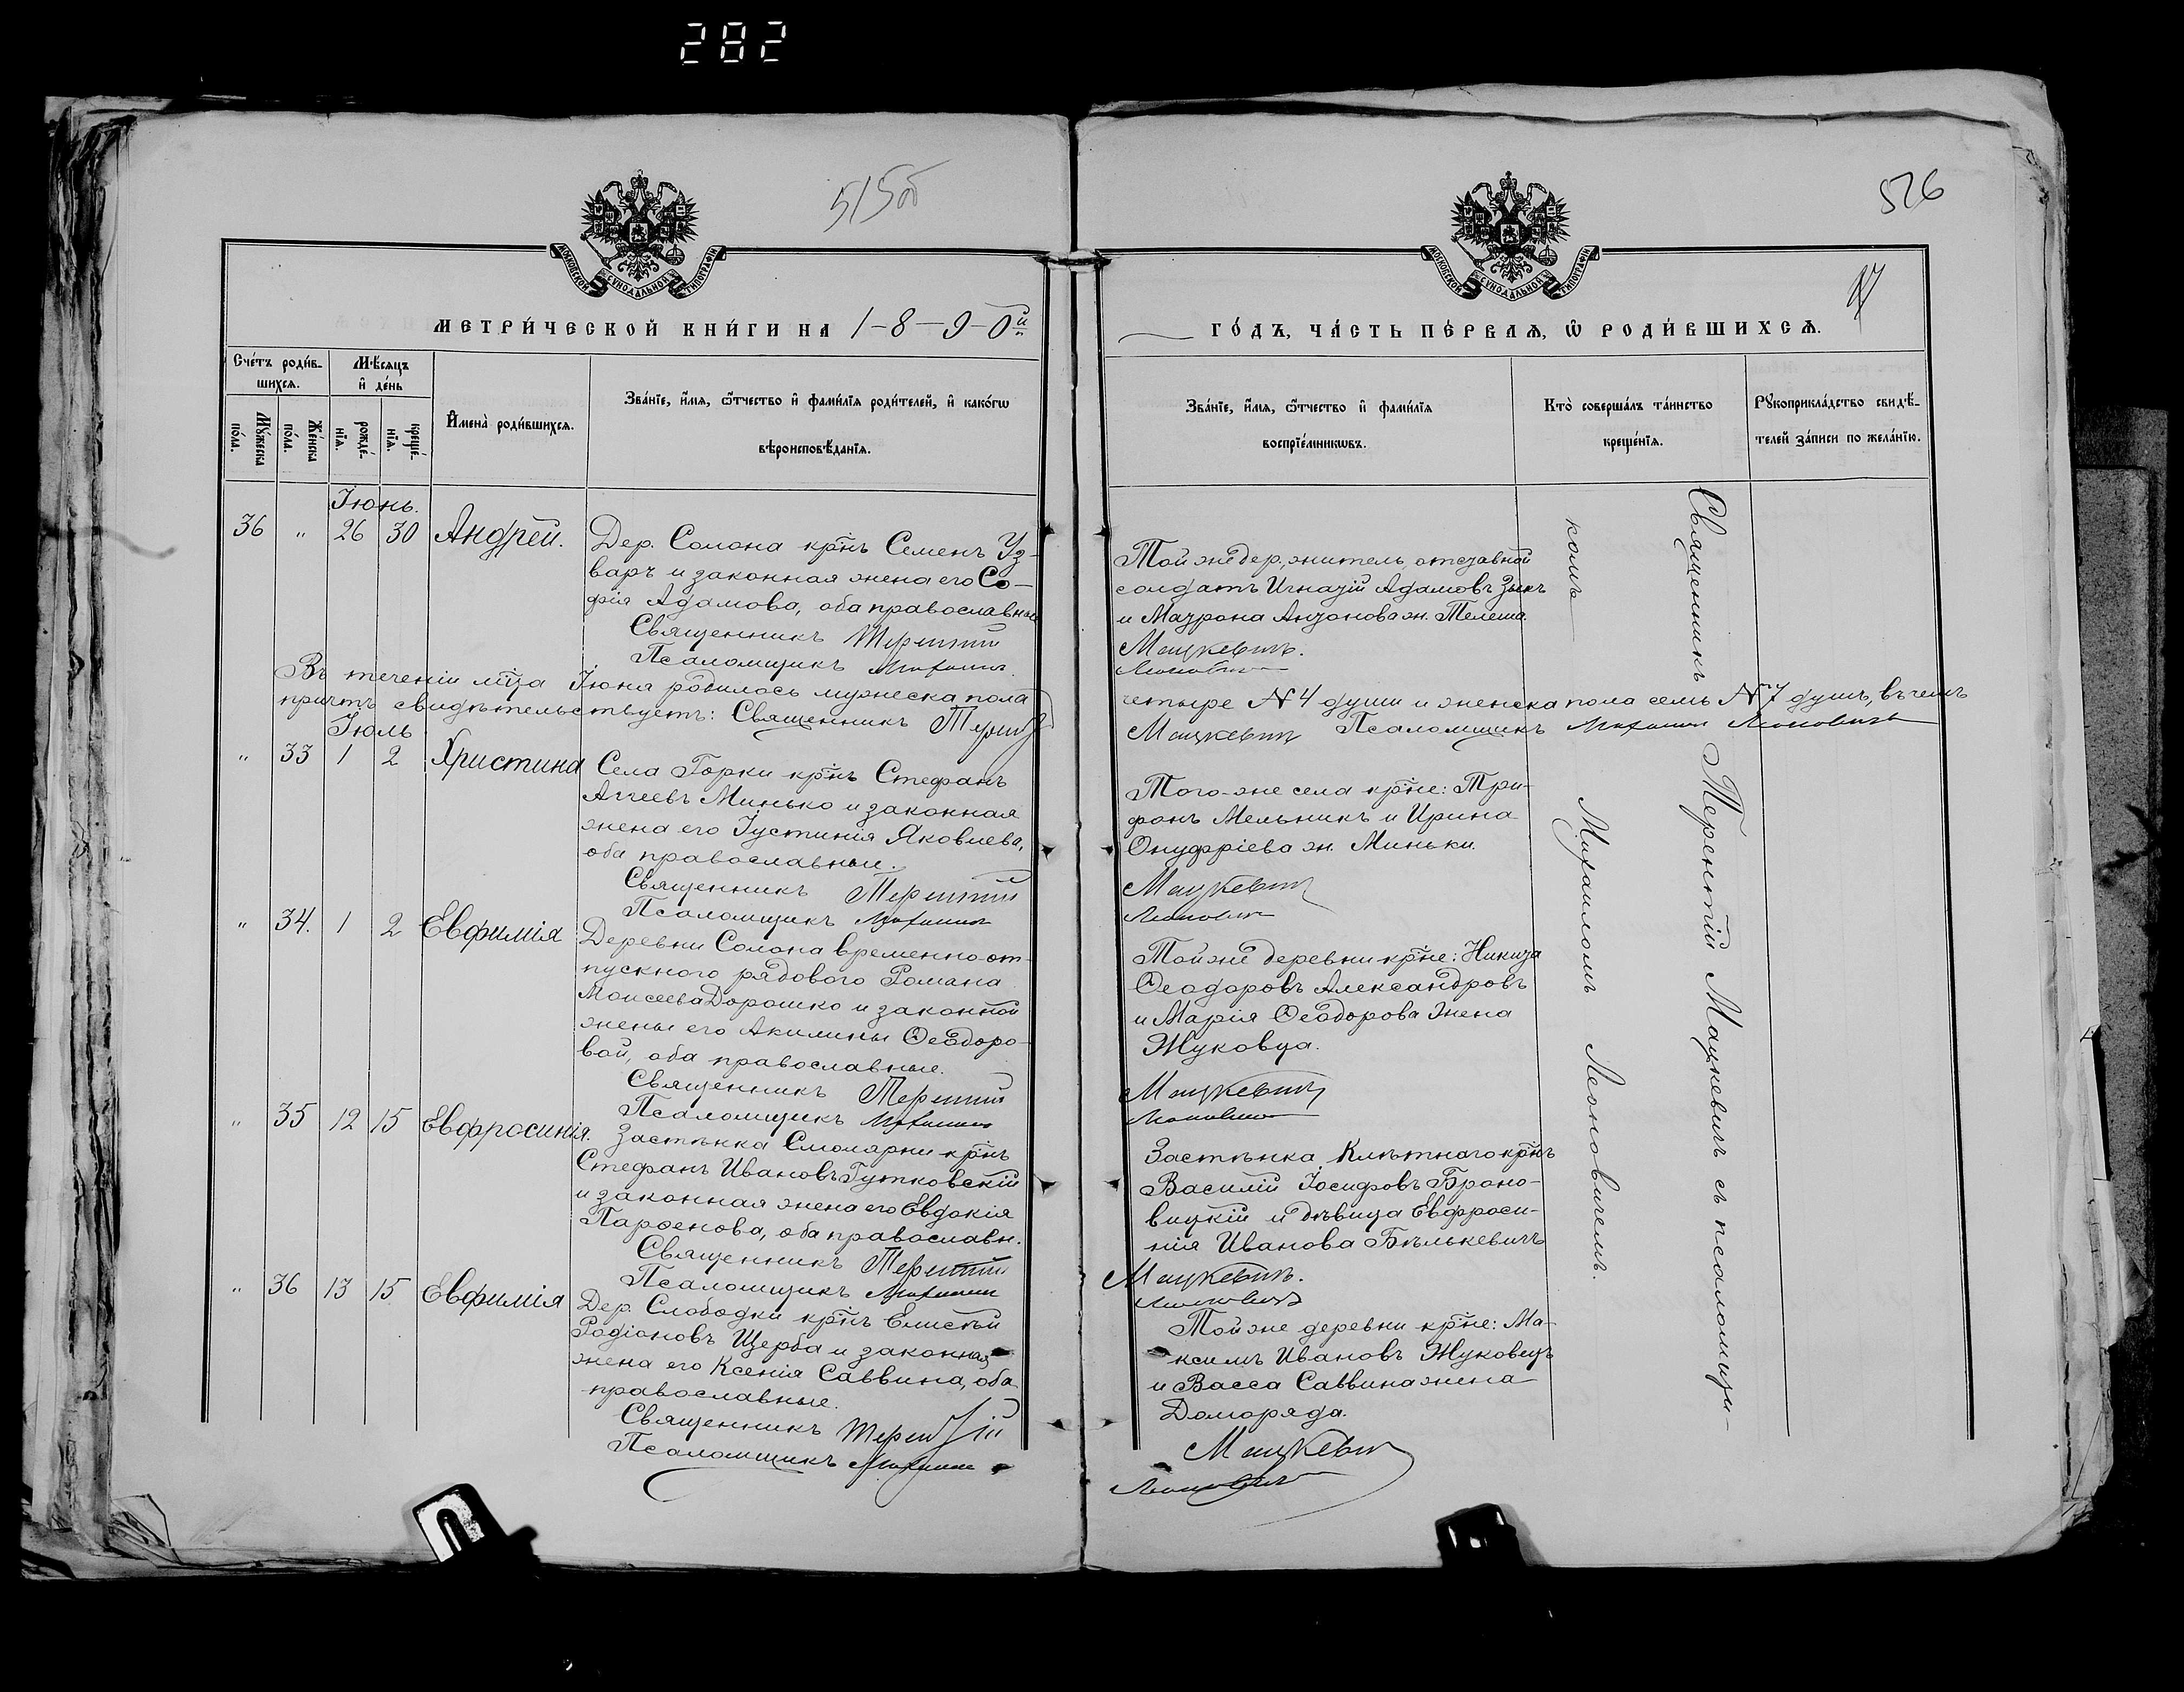 282
515об
526
МОСКОВСКОЙ СѴНОДАЛЬНОЙ ТИПОГРАФІИ
МОСКОВСКОЙ СѴНОДАЛЬНОЙ ТИПОГРАФІИ
МЕТРИ́ЧЕСКОЙ КНИ́ГИ НА 1-8-9-0й
ГО́ДЪ, ЧА́СТЬ ПЕ́РВАѦ, Ѿ РОДИ́ВШИХСѦ.
Сче́тъ роди́в-
шихсѧ.
Мѣ́сѧцъ
и҆ де́нь
Мꙋ́жеска по́ла.
Же́нска по́ла.
рожде́-
нїѧ.
креще́-
нїѧ.
И҆мена̀ роди́вшихсѧ.
Зва́нїе, и҆́мѧ, ѻ҆́тчество и҆ фами́лїѧ роди́телей, и҆ како́гѡ
вѣроисповѣ́данїѧ.
Зва́нїе, и҆́мѧ, ѻ҆́тчество и҆ фами́лїѧ
воспрїе́мникѡвъ.
Кто̀ соверша́лъ та́инство
креще́нїѧ.
Рꙋкоприкла́дство свидѣ́-
телей за́писи по жела́нїю.
Іюнь.
36 " 26 30 Андрей.
Дер. Солона кр-нъ Семенъ Уз-
варъ и законная жена его Со-
фія Адамова, оба православные
Священникъ Терентій
Псаломщикъ Михаилъ
Той же дер. житель отставной
солдатъ Игнатій Адамовъ Зыкъ
и Матрона Антонова ж. Телеша.
Мацкевичъ.
Леоновичъ
Въ теченіи м-ца Іюня родилось мужеска пола
четыре N 4 души и женска пола семь N 7 душъ, въ чемъ
причтъ свидѣтельствуетъ: Священникъ Терентій
Мацкевичъ Псаломщикъ Михаилъ Леоновичъ
Іюль
" 33 1 2 Христина
Села Горки кр-нъ Стефанъ
Аггеевъ Минько и законная
жена его Іустинія Яковлева,
оба православные.
Священникъ Терентій
Псаломщикъ Михаилъ
Того-же села кр-не: Три-
фонъ Мельникъ и Ирина
Онуфріева ж. Миньки.
Мацкевичъ
Леоновичъ
" 34. 1 2 Евфимія
Деревни Солона временно от-
пускного рядового Романа
Моисеева Дорошко и законной
жены его Акилины Ѳеодоро-
вой, оба православные.
Священникъ Терентій
Псаломщикъ Михаилъ
Той же деревни кр-не: Никита
Ѳеодоровъ Александровъ
и Марія Ѳеодорова жена
Жуковца.
Мацкевичъ
Леоновичъ
" 35 12 15 Евфросинія.
Застѣнка Смолярни кр-нъ
Стефанъ Ивановъ Гутковскій
и законная жена его Евдокія
Парѳенова, оба православн.
Священникъ Терентій
Псаломщикъ Михаилъ
Застѣнка Клѣтнаго кр-нъ
Василій Іосифовъ Броно-
вицкій и дѣвица Евфроси-
нія Иванова Бѣлькевичъ
Мацкевичъ.
Леоновичъ
" 36 13 15 Евфимія
Дер. Слободки кр-нъ Елисѣй
Родіоновъ Щерба и законная
жена его Ксенія Саввина, оба
православные.
Священникъ Терентій
Псаломщикъ Михаилъ
Той же деревни кр-не: Ма-
ксимъ Ивановъ Жуковецъ
и Васса Саввина жена
Доморяда.
Мацкевичъ
Леоновичъ
Священникъ Терентій Мацкевичъ съ псаломщи-
комъ Михаиломъ Леоновичемъ.